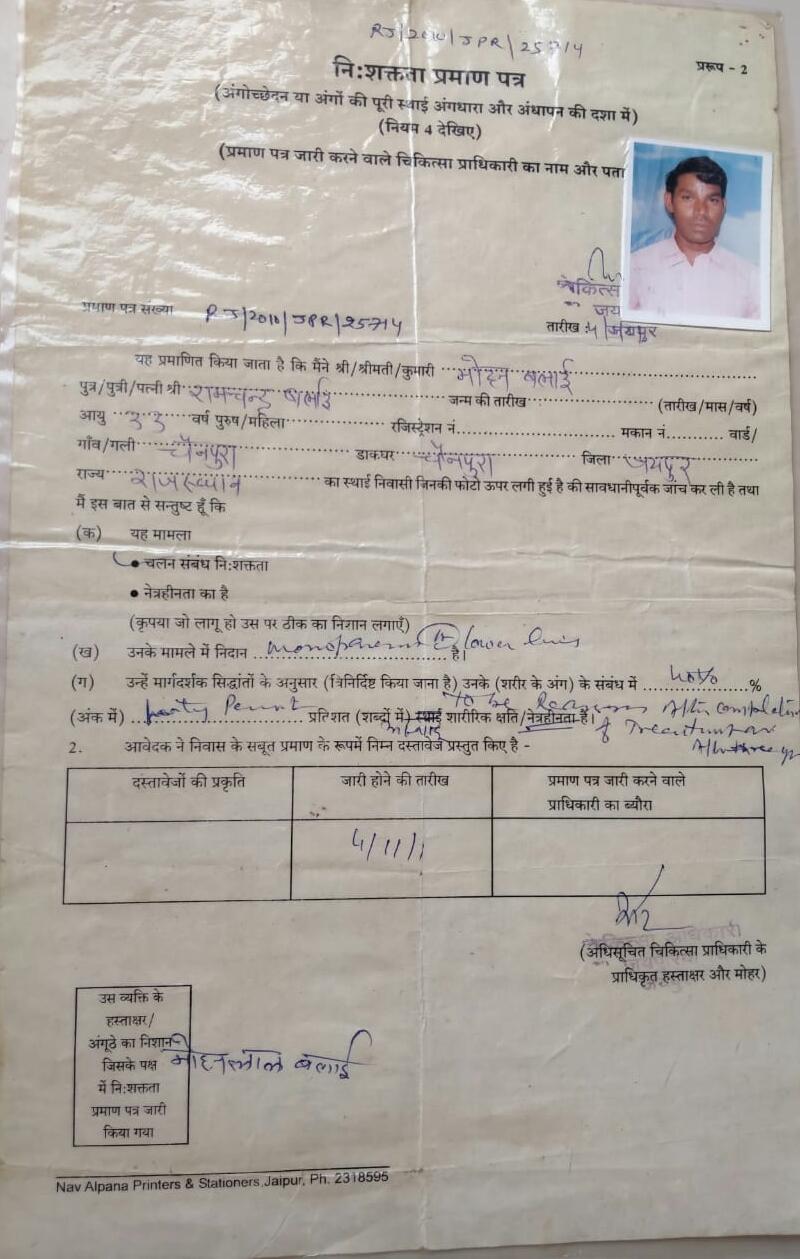 RJ/2010/JPR/25714
प्ररूप - 2
नि:शक्तता प्रमाण पत्र
(अंगोच्छेदन या अंगों की पूरी स्थाई अंगधारा और अंधापन की दशा में)
(नियम 4 देखिए)
(प्रमाण पत्र जारी करने वाले चिकित्सा प्राधिकारी का नाम और पता
चिकित्स
जय
प्रमाण पत्र संख्या RJ/2010/JPR/25714
तारीख जयपुर
यह प्रमाणित किया जाता है कि मैंने श्री/श्रीमती/कुमारी मोहन बलाई
पुत्र/पुत्री/पत्नी श्री रामचन्द्र बलाई जन्म की तारीख (तारीख/मास/वर्ष)
आयु 33 वर्ष पुरुष/महिला रजिस्ट्रेशन नं. मकान नं. वार्ड/
गाँव/गली चैनपुरा डाकघर चैनपुरा जिला जयपुर
राज्य राजस्थान का स्थाई निवासी जिनकी फोटो ऊपर लगी हुई है की सावधानीपूर्वक जांच कर ली है तथा
मैं इस बात से सन्तुष्ट हूँ कि
(क) यह मामला
• चलन संबंध नि:शक्तता
• नेत्रहीनता का है
(कृपया जो लागू हो उस पर ठीक का निशान लगाएँ)
(ख) उनके मामले में निदान lower है।
(ग) उन्हें मार्गदर्शक सिद्धांतों के अनुसार (विनिर्दिष्ट किया जाना है) उनके (शरीर के अंग) के संबंध में 40% %
To be After completion
(अंक में) प्रतिशत (शब्दों में) स्थाई शारीरिक क्षति/नेत्रहीनता है।
of Treatment
2. आवेदक ने निवास के सबूत प्रमाण के रूपमें निम्न दस्तावेज प्रस्तुत किए है -
दस्तावेजों की प्रकृति जारी होने की तारीख प्रमाण पत्र जारी करने वाले
प्राधिकारी का ब्यौरा
(अधिसूचित चिकित्सा प्राधिकारी के
प्राधिकृत हस्ताक्षर और मोहर)
उस व्यक्ति के
हस्ताक्षर/
अंगूठे का निशान
जिसके पक्ष मोहनलाल बलाई
में नि:शक्तता
प्रमाण पत्र जारी
किया गया
Nav Alpana Printers & Stationers,Jaipur, Ph. 2318595